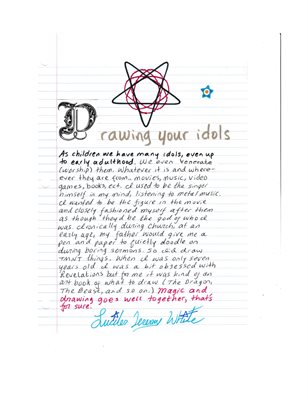 Drawing your idols
As children we have many idols, even up
to early adulthood. We even venerate
(worship) them. Whatever it is and where-
ever they are from... movies, music, video
games, books, ect. I used to be the singer
himself in my mind, listening to metal music.
I wanted to be the figure in the movie
and closely fashioned myself after them
as though they'd be the god of who I
was. Ironically during church, at an
early age, my father would give me a
pen and paper to quietly doodle on
during boring sermons. So I'd draw
TMNT things. When I was only seven
years old I was a bit obsessed with
Revelations but for me it was kind of an
art book of what to draw (The Dragon,
The Beast, and so on.) Magic and
drawing goes well together, that's
for sure.
Jeremy White